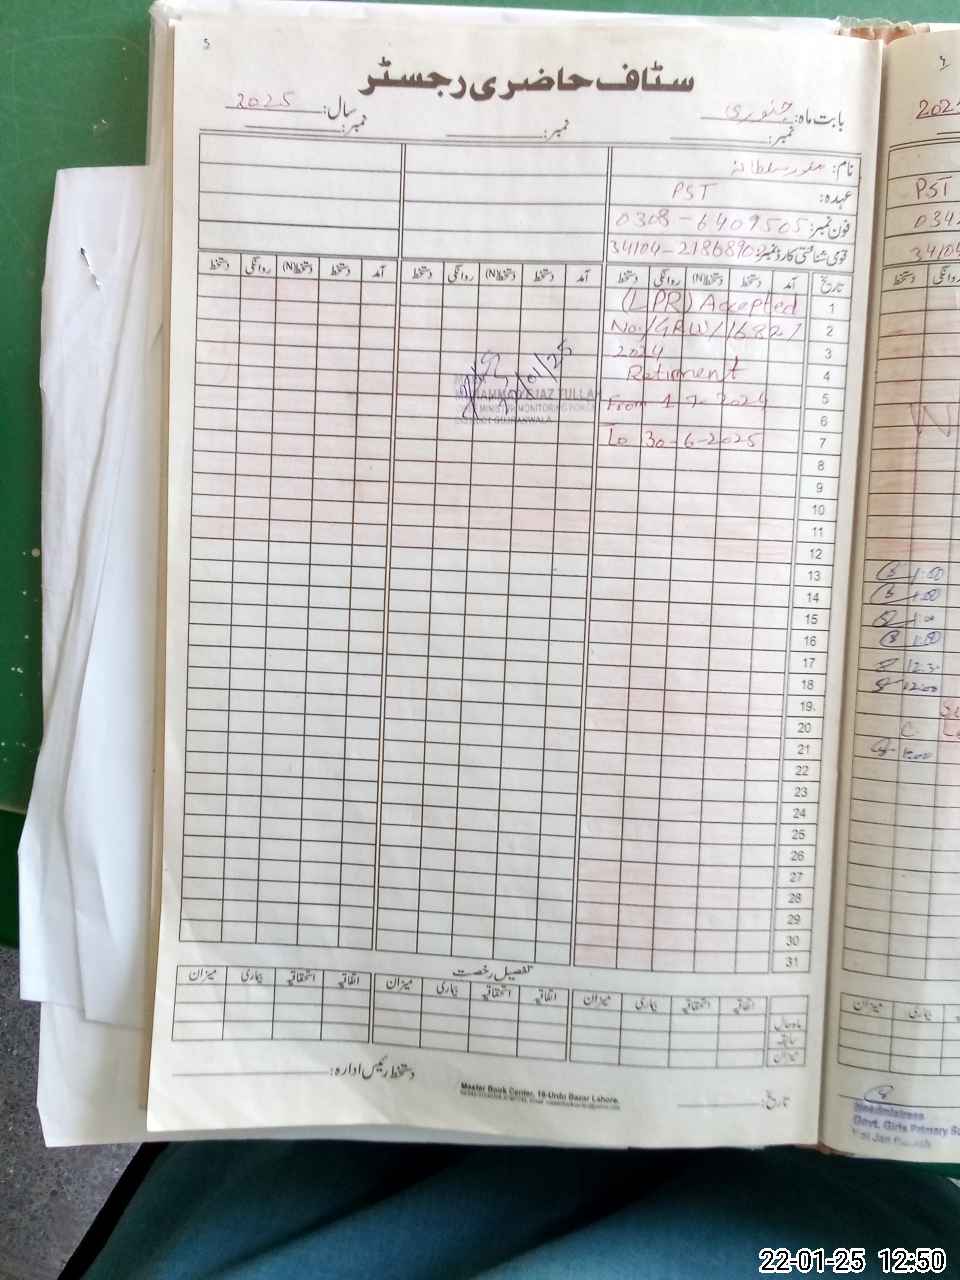 5
سٹاف حاضری رجسٹر
بابت ماہ: جنوری سال: 2025
نمبر: نمبر: نمبر:
نام: سلطانہ
عہدہ: PST
فون نمبر: 0308-6409505
قومی شناختی کارڈ نمبر: 34104-2186890
تاریخ آمد دستخط دستخط(N) روانگی دستخط آمد دستخط دستخط(N) روانگی دستخط آمد دستخط دستخط(N) روانگی دستخط
1 (LPR) Accepted
2 No./GRW/16827
3 2024
4 Retirement
5 From 1-7-2024
6
7 To 30-6-2025
8
9
10
11
12
13
14
15
16
17
18
19.
20
21
22
23
24
25
26
27
28
29
30
31
01/25
MUHAMMAD IJAZ TULLAH
MINISTER MONITORING FORCE
DISTRICT GUJRANWALA
تفصیل رخصت
اتفاقیہ استحقاقیہ بیماری میزان اتفاقیہ استحقاقیہ بیماری میزان اتفاقیہ استحقاقیہ بیماری میزان
ماہ حال
سابقہ
میزان
تاریخ: دستخط رئیس ادارہ:
Master Book Center, 16-Urdu Bazar Lahore.
2025
PST
034
3410
روانگی دستخط
1:00
1:00
1:00
1:00
12:3
12:00
C.
12:00
بیماری میزان
Headmistress
Govt. Girls Primary S
22-01-25 12:50